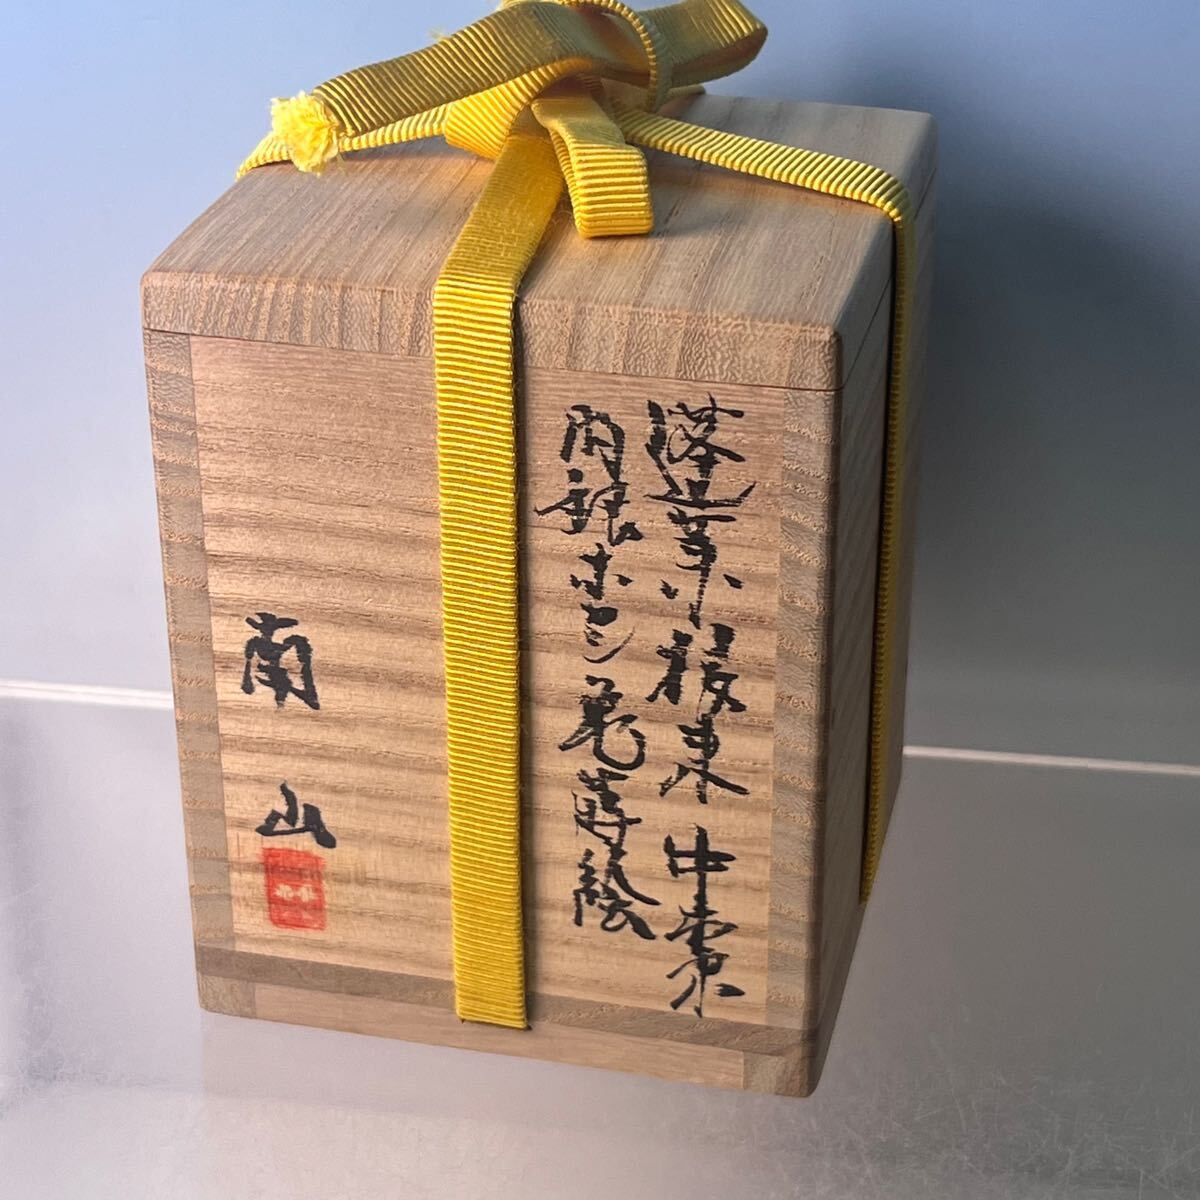 蓬莱 中棗
内銀ホシ亀蒔絵
南山